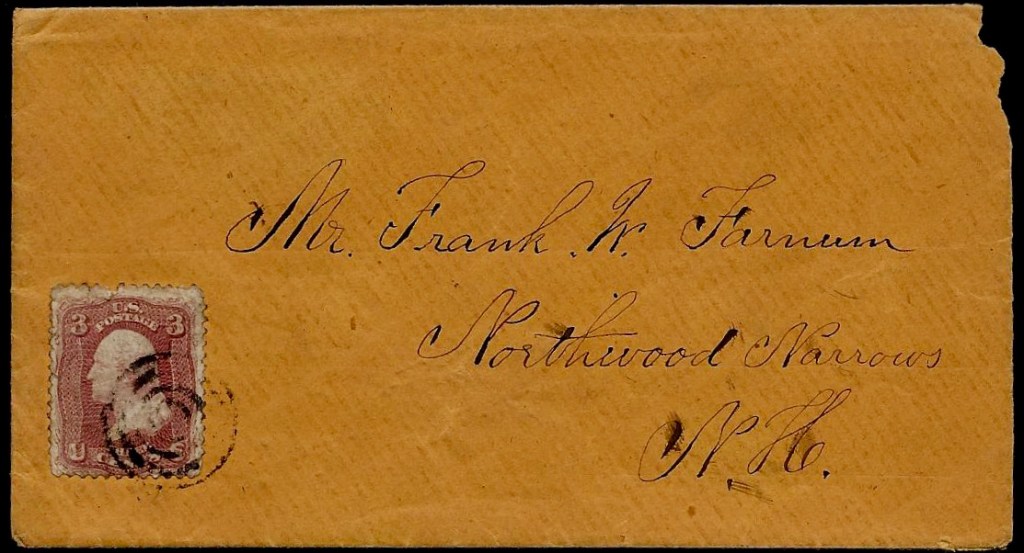 Mr. Frank W. Farnum
Northwood Narrows
N. H.
U.S.
POSTAGE
3 3
U S